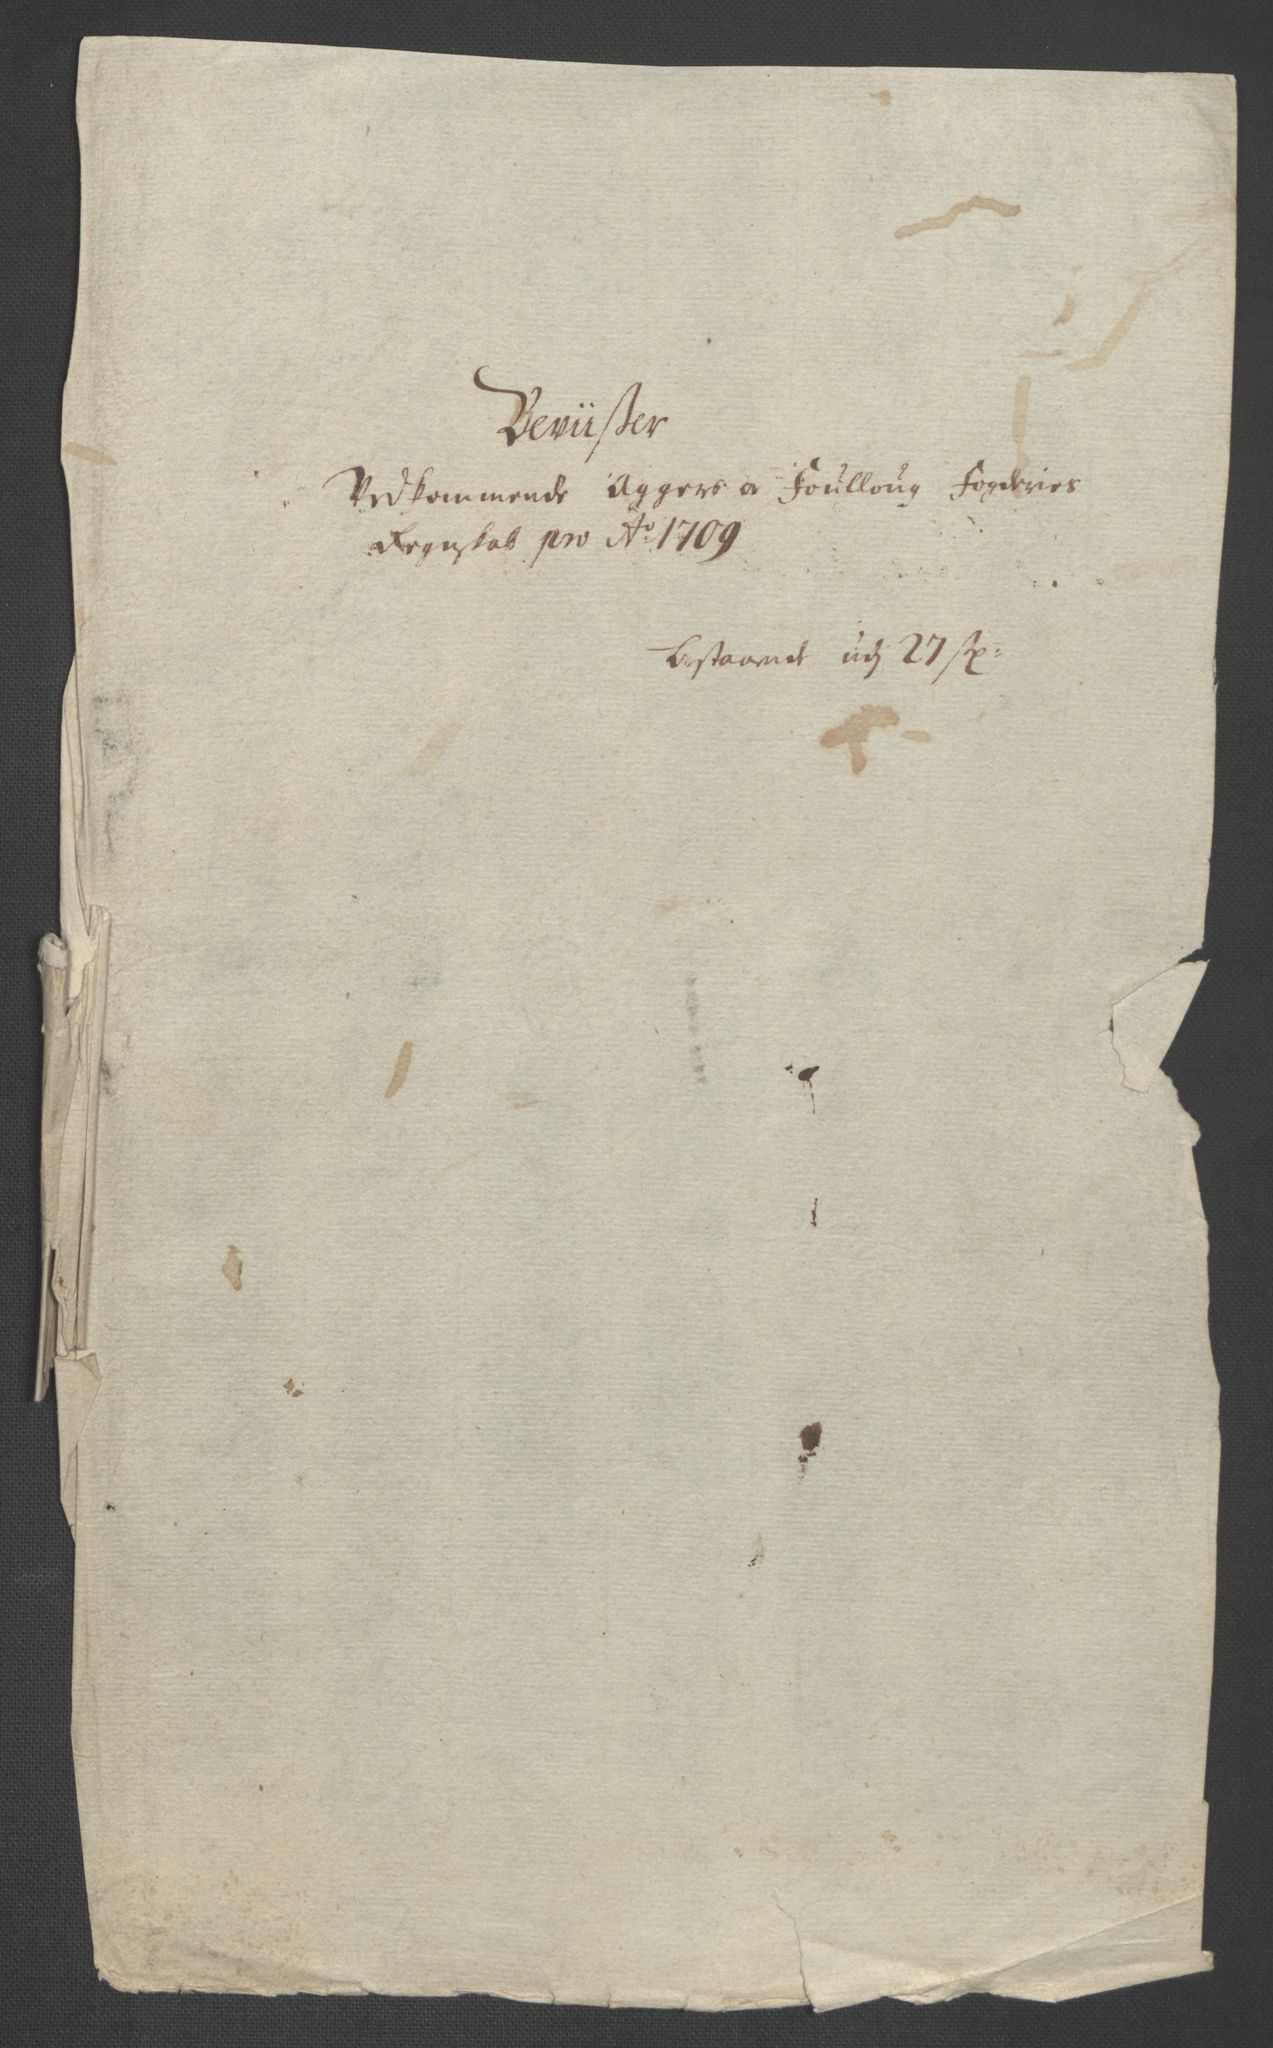 Beviißer
Vedkommende Aggers oc Foülloüg Fogderies
Regnskab pro Ao 1709
bestaaende üdj 27 stk: